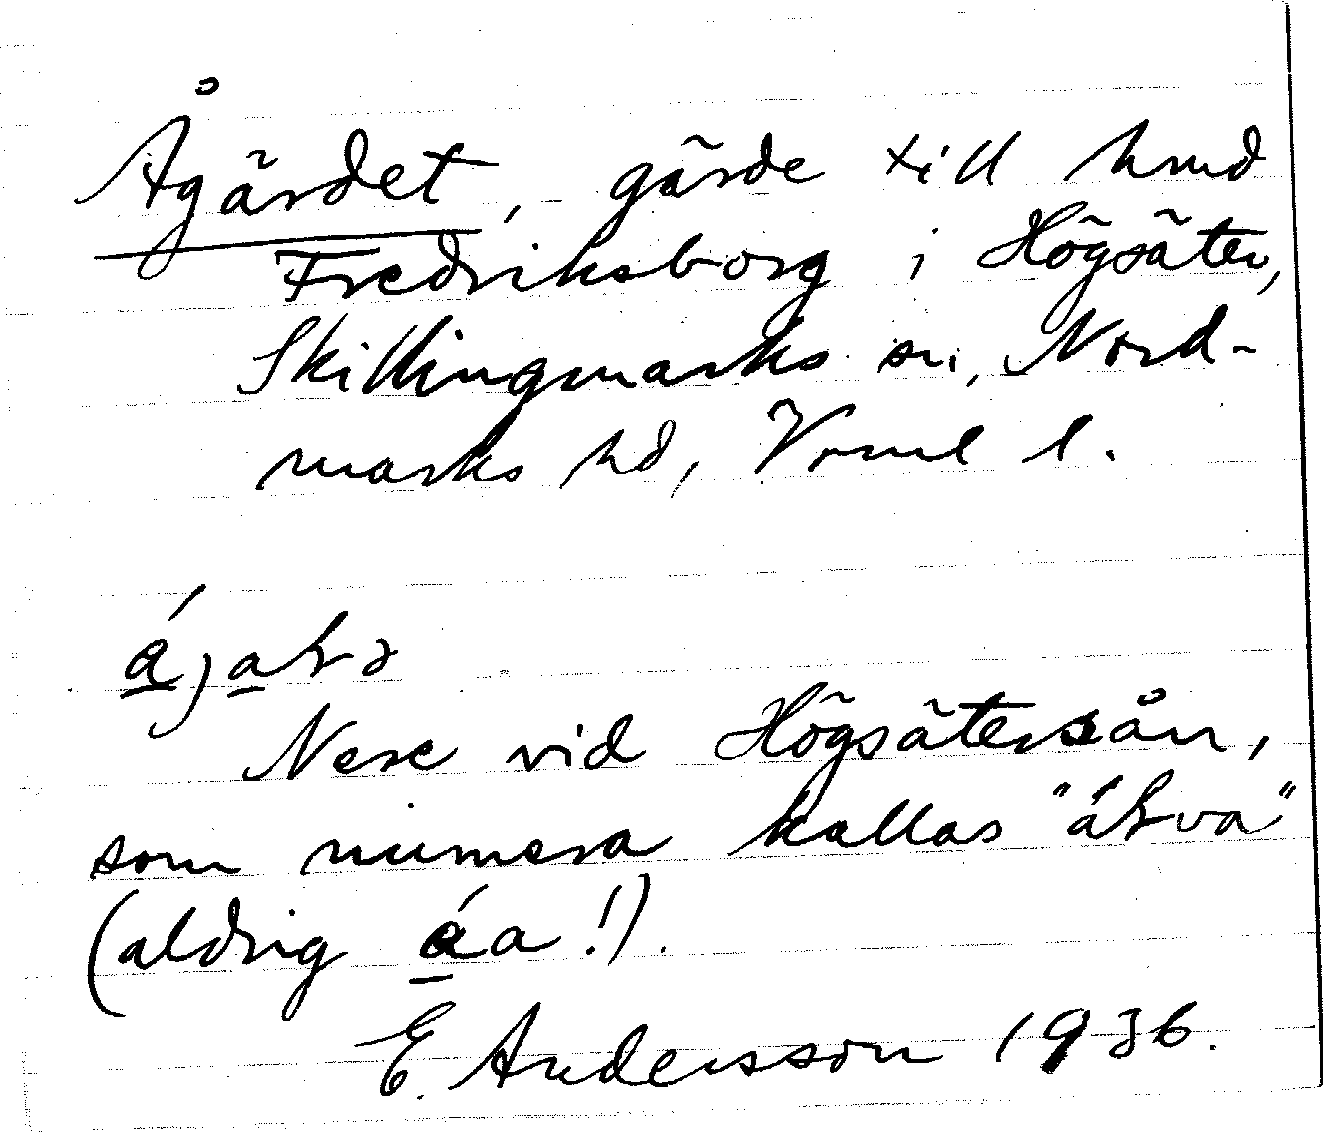 Ågärdet, gärde till hmd
Fredriksborg i Högsäter,
Skillingmarks sn, Nord-
marks hd, Vrml l.
Nere vid Högsätersån,
som numera kallas
(aldrig áa!).
E. Andersson 1936.